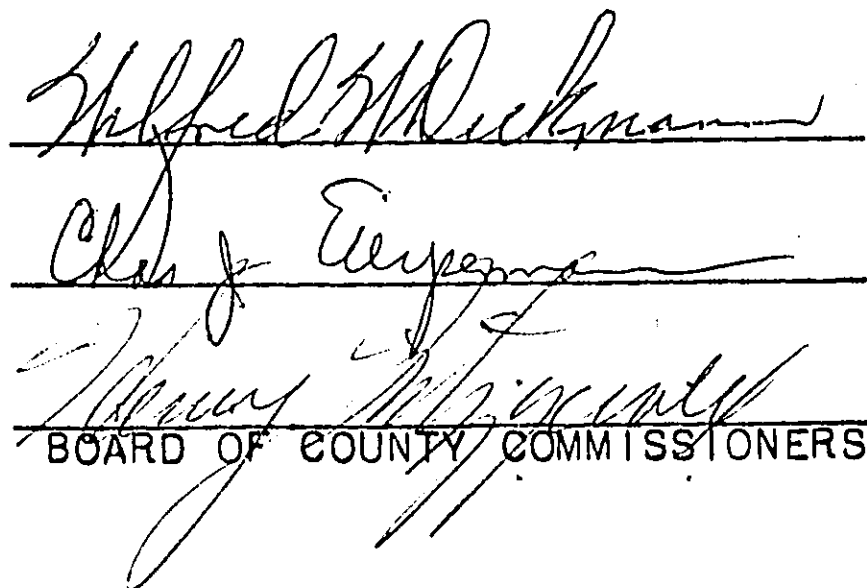 Wilfred W Dieckmann
Chas J
Henry
BOARD OF COUNTY COMMISSIONERS